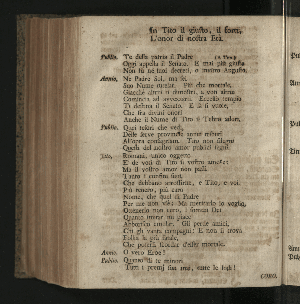 In Tito il giusto, il forte,
L'onor di nostra Età.
Publio. Te della patria il Padre (a Tito.)
Oggi appella il Senato. E mai più giusto
Non fu ne' suoi decreti, o invitto Augusto.
Annio. Nè Padre sol, ma sei
Suo Nume tutelar. Più che mortale
Giacchè altrui ti dimostri, a voti altrui
Comincia ad avvezzarti. Eccelso tempio
Ti destina il Senato. E là si vuole,
Che fra divini onori
Anche il Nume di Tito il Tebro adori.
Publio. Quei tesori che vedi,
Delle serve provincie annui tributi
All'opra consagriam. Tito non sdegni
Questi del nostro amor pubblici segni.
Tito. Romani, unico oggetto
E' de' voti di Tito il vostro amore:
Ma il vostro amor non passi
Tanto i confini suoi,
Che debbano arrossirne, e Tito, e voi.
Più tenero, più caro
Nome, che quel di Padre
Per me non v'è: Ma meritarlo io voglio,
Ottenerlo non curo. I sommi Dei
Quanto imitar mi piace
Abborrisco emular. Gli perde amici,
Chi gli vanta compagni: E non si trova
Follia la più fatale,
Che potersi scordar d'esser mortale.
Annio. O vero Eroe!
Publio. Quanto di te minori
Tutti i premj son mai, tutte le lodi!
CORO.
Publio
Annio
Publio
Tito